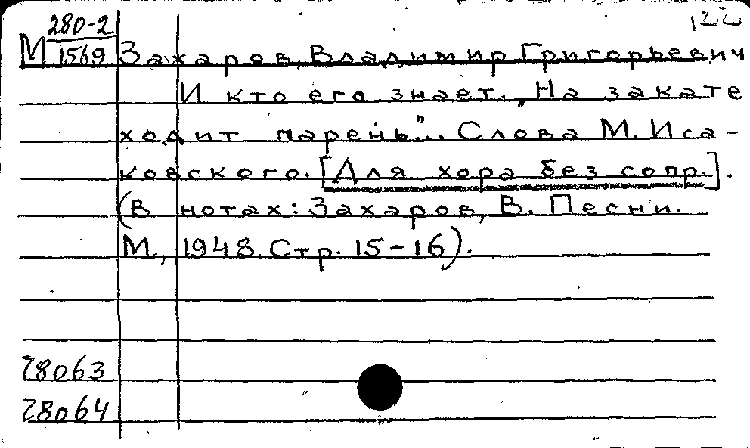 280-2 122
М 1569 Захаров, Владимир Григорьевич
И кто его знает. „На закате
ходит парень"... Слова М. Иса-
ковского. [Для хора без сопр.].
(В нотах: Захаров, В. Песни.
М., 1948. Стр. 15-16).
28063
28064